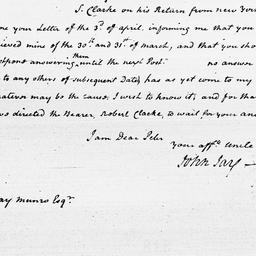 S. Clarke on his Return from new York
me your Letter of the 3d of april, informing me that you
ieved mine of the 30th and 31st of march, and that you shou
stpone answering them until the next Post. no answer
to any others of subsequent Dates has as yet come to my
may be the cause. I wish to know it; and for tha
ve directed the Bearer, Robert Clarke, to wait for your an
I am Dear Peter
your affte. Uncle
John Jay
ay munro Esqr.